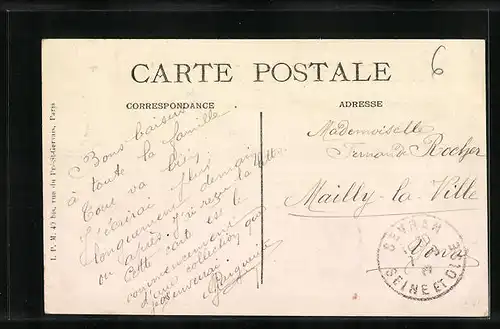 6
CARTE POSTALE
CORRESPONDANCE
ADRESSE
Bons baisers
à toute la famille
Tout va bien
J'écrirai plus
longuement demain
ou après. J'ai reçu la lettre
Cette carte est le
commencement
d'une collection que
j'enverrai.
Mademoiselle
Fernande Rocher
Mailly-la-Ville
Yonne
SEVRAN
SEINE ET OISE
I. P. M. 49 bis, rue du Pré-St-Gervais, Paris